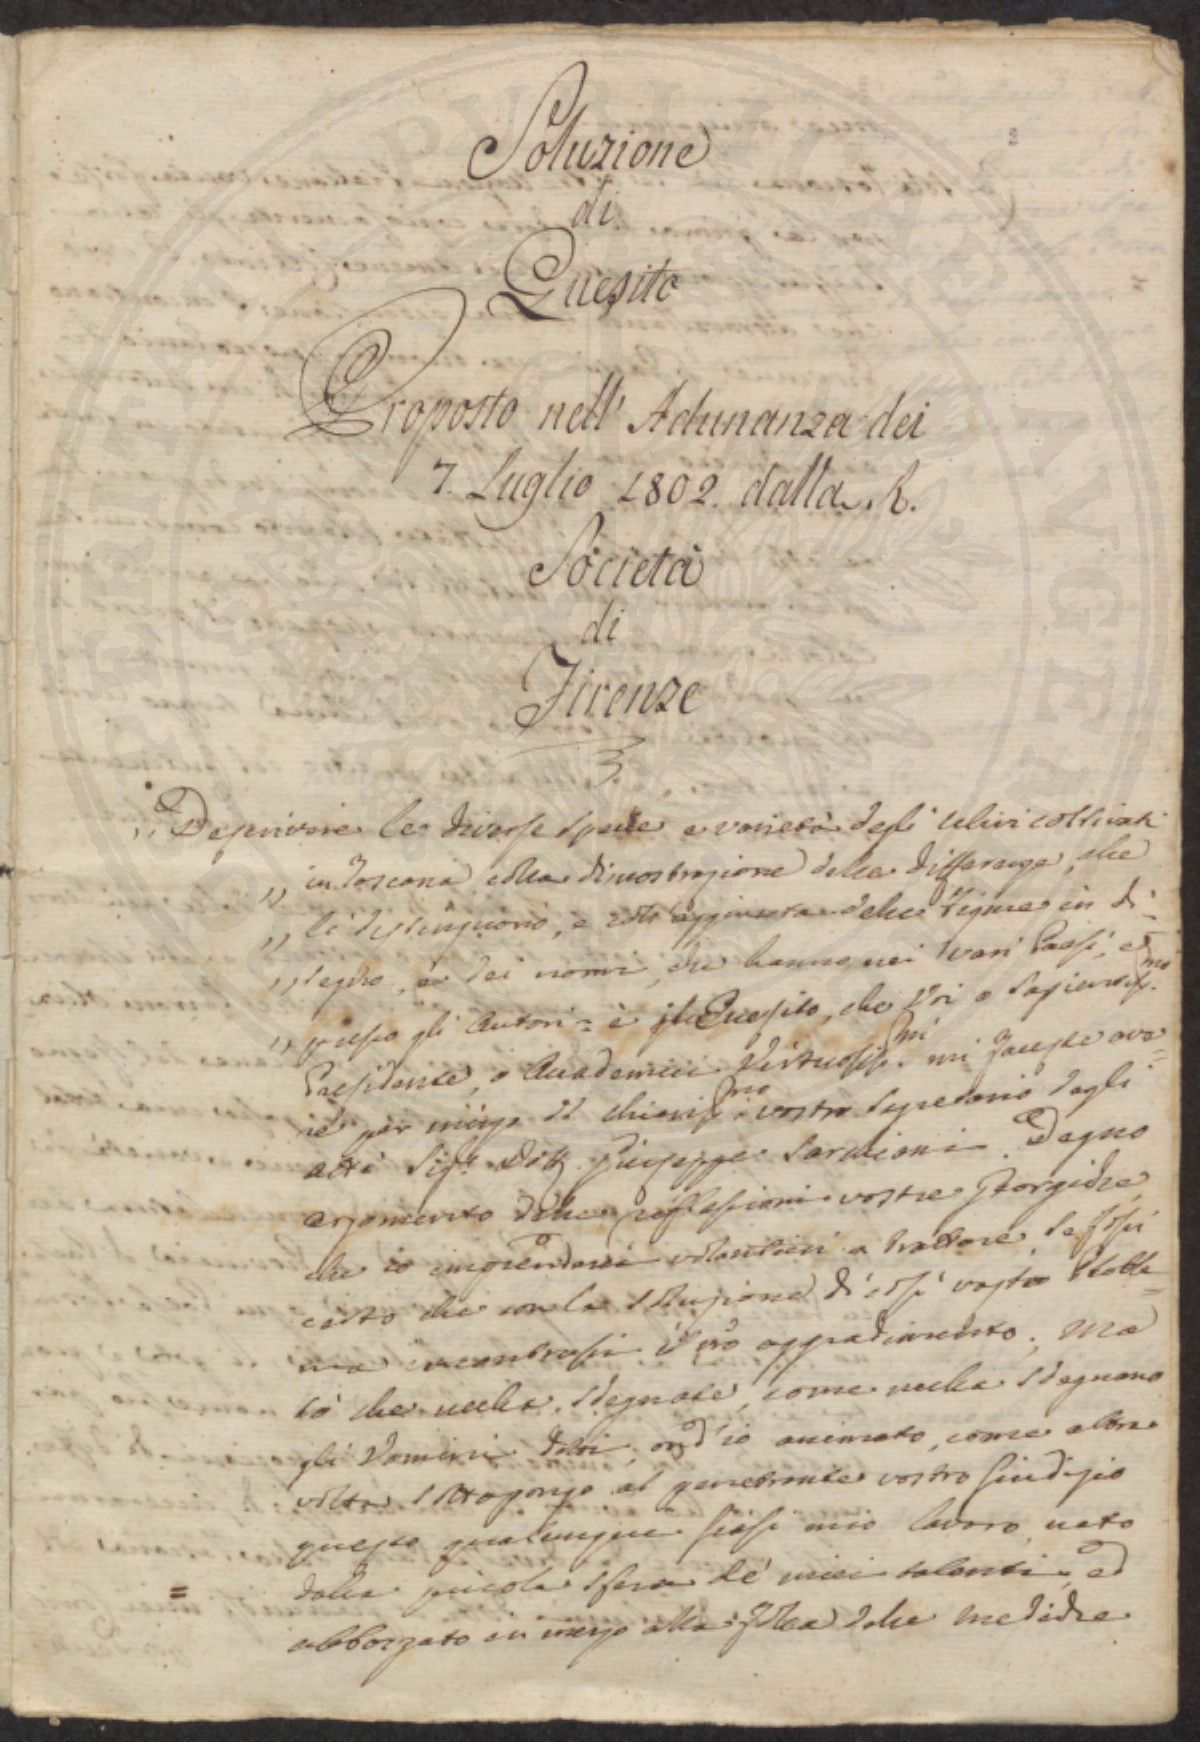 Soluzione
di
Quesito
Proposto nell' Adunanza dei
7. Luglio 1802. dalla R.
Società
di
Firenze
3.
,, Descrivere le diverse specie e varietà degli ulivi coltivati
,, in Toscana colla dimostrazione delle differenze, che
,, li distinguono, e coll'aggiunta delle Figure in di=
,, segno, e dei nomi, che hanno nei vari Paesi, e
,, presso gli Autori = è il Quesito, che Voi o Sapientiss.mo
Presidente, o Accademici Virtuosiss.mi mi faceste ava=
re per mezzo del chiariss.mo vostro Segretario degli
atti Sig.r Dott. Giuseppe Sarchiani. Degno
argomento delle riflessioni vostre
che io imprenderei volentieri a trattare, se fossi
certo che con la soluzione di così vasto Proble=
ma incontrassi il vro aggradimento. Ma
so che nulla sdegnate, come nulla sdegnano
gli Uomini dotti, ond'io animato, come altra
volta sottopongo al penetrante vostro Giudizio
questo qualunque siasi mio lavoro, nato
dalla piccola sfera de' miei talenti, ed
abbozzato in mezzo alla folla delle mediche